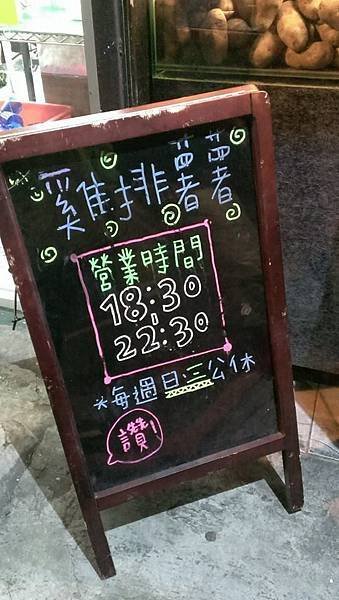 雞排薯薯
營業時間
18:30
22:30
*每週日.三公休
讚!